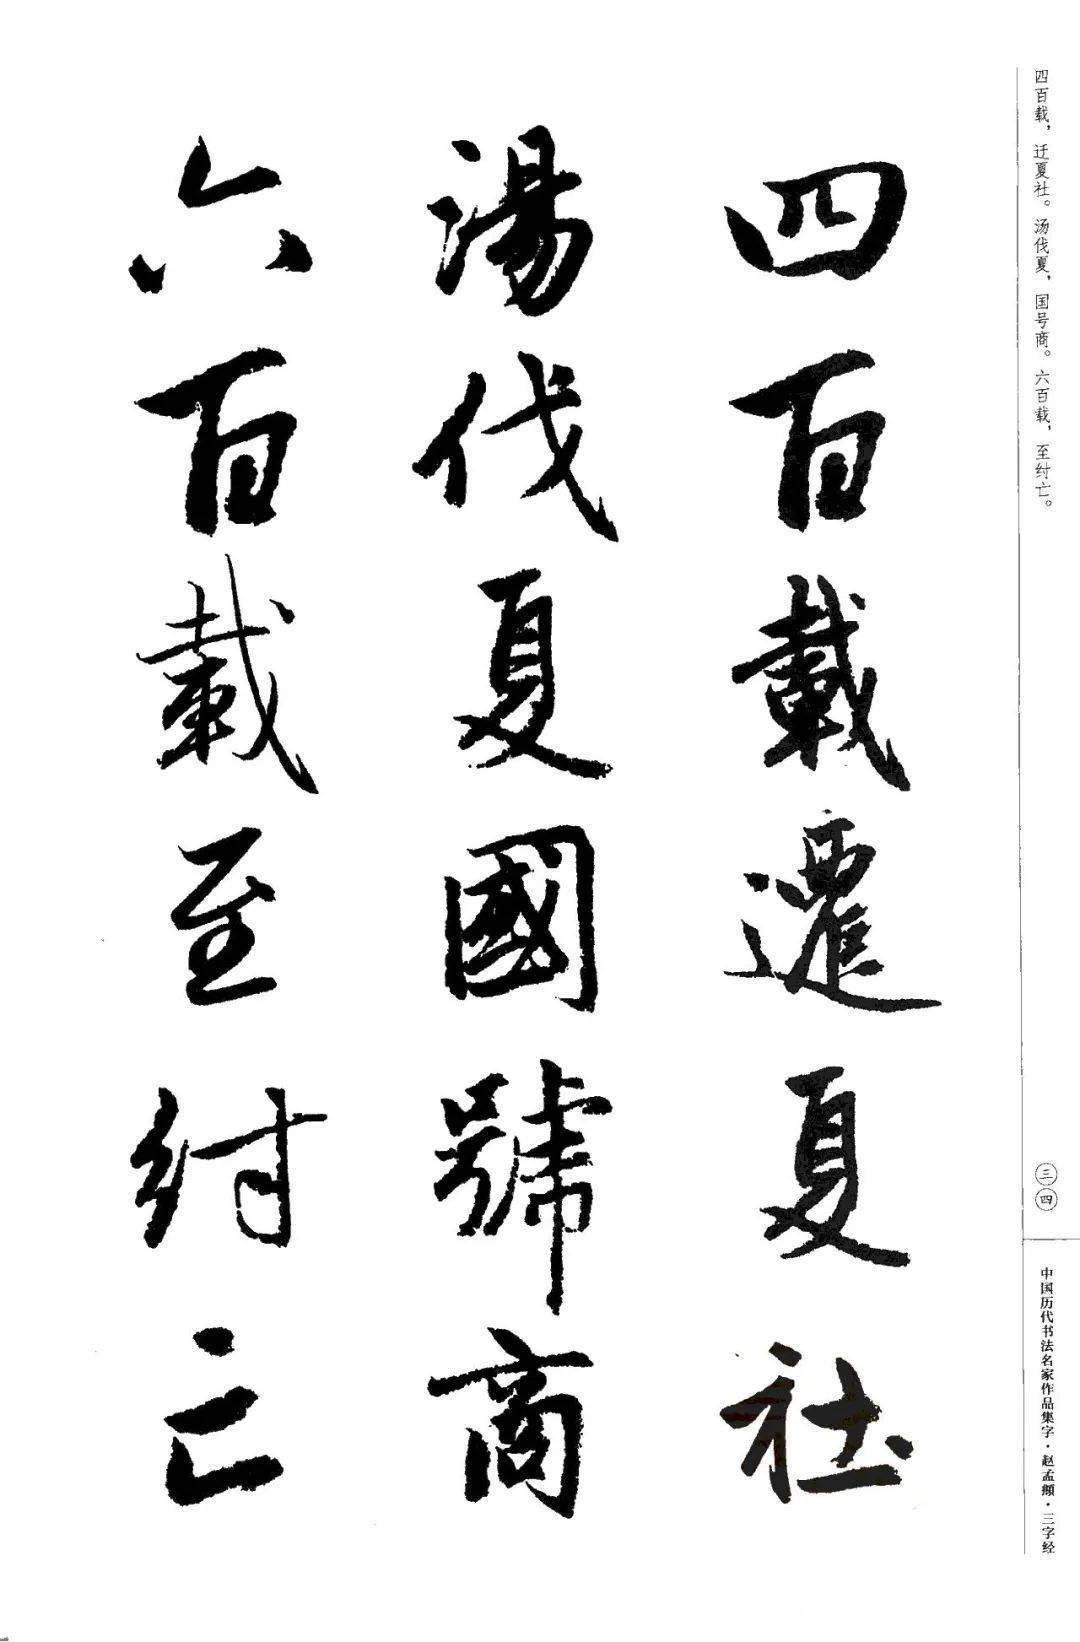 四百载，迁夏社。汤伐夏，国号商。六百载，至纣亡。
四百載遷夏社
湯伐夏國號商
六百載至紂亡
三四
中国历代书法名家作品集字·赵孟頫·三字经